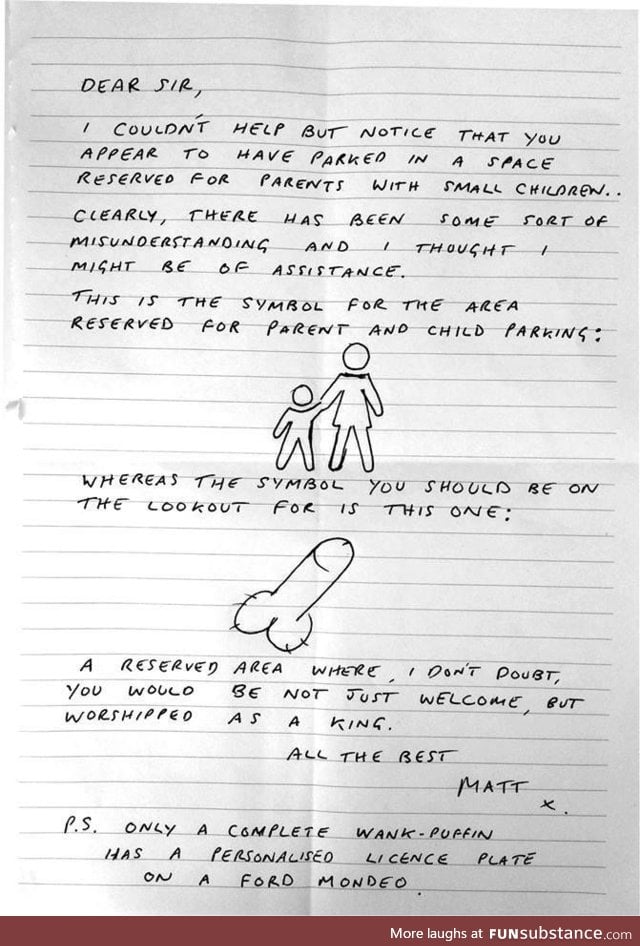 DEAR SIR,
I COULDN'T HELP BUT NOTICE THAT YOU
APPEAR TO HAVE PARKED IN A SPACE
RESERVED FOR PARENTS WITH SMALL CHILDREN..
CLEARLY, THERE HAS BEEN SOME SORT OF
MISUNDERSTANDING AND I THOUGHT I
MIGHT BE OF ASSISTANCE.
THIS IS THE SYMBOL FOR THE AREA
RESERVED FOR PARENT AND CHILD PARKING:
WHEREAS THE SYMBOL YOU SHOULD BE ON
THE LOOKOUT FOR IS THIS ONE:
A RESERVED AREA WHERE, I DON'T DOUBT,
YOU WOULD BE NOT JUST WELCOME, BUT
WORSHIPPED AS A KING.
ALL THE BEST
MATT
x.
P.S. ONLY A COMPLETE WANK-PUFFIN
HAS A PERSONALISED LICENCE PLATE
ON A FORD MONDEO.
More laughs at FUNsubstance.com